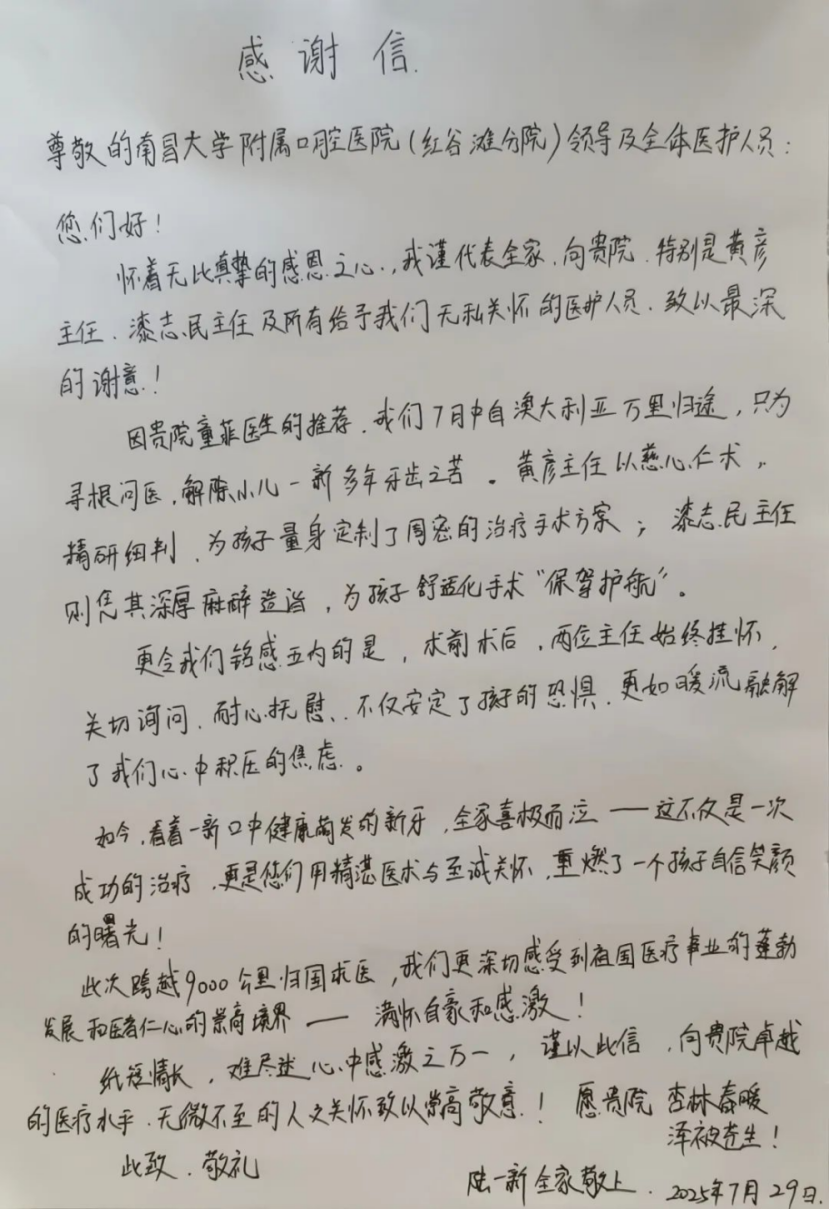 感谢信
尊敬的南昌大学附属口腔医院(红谷滩分院)领导及全体医护人员：
您们好！
怀着无比真挚的感恩之心，我谨代表全家，向贵院，特别是黄彦
主任、漆志民主任及所有给予我们无私关怀的医护人员，致以最深
的谢意！
因贵院童菲医生的推荐，我们7月中自澳大利亚万里归途，只为
寻根问医，解除小儿一新多年牙齿之苦。黄彦主任以慈心仁术，
精研细判，为孩子量身定制了周密的治疗手术方案；漆志民主任
则凭其深厚麻醉造诣，为孩子舒适化手术“保驾护航”。
更令我们铭感五内的是，术前术后，两位主任始终挂怀，
关切询问，耐心抚慰，不仅安定了孩子的恐惧，更如暖流融解
了我们心中积压的焦虑。
如今，看着一新口中健康萌发的新牙，全家喜极而泣——这不仅是一次
成功的治疗，更是您们用精湛医术与至诚关怀，重燃了一个孩子自信笑颜
的曙光！
此次跨越9000公里归国求医，我们更深切感受到祖国医疗事业的蓬勃
发展和医者仁心的崇高境界——满怀自豪和感激！
纸短情长，难尽述心中感激之万一，谨以此信，向贵院卓越
的医疗水平、无微不至的人文关怀致以崇高敬意！愿贵院 杏林春暖
泽被苍生！
此致、敬礼
陆一新全家敬上、2025年7月29日.